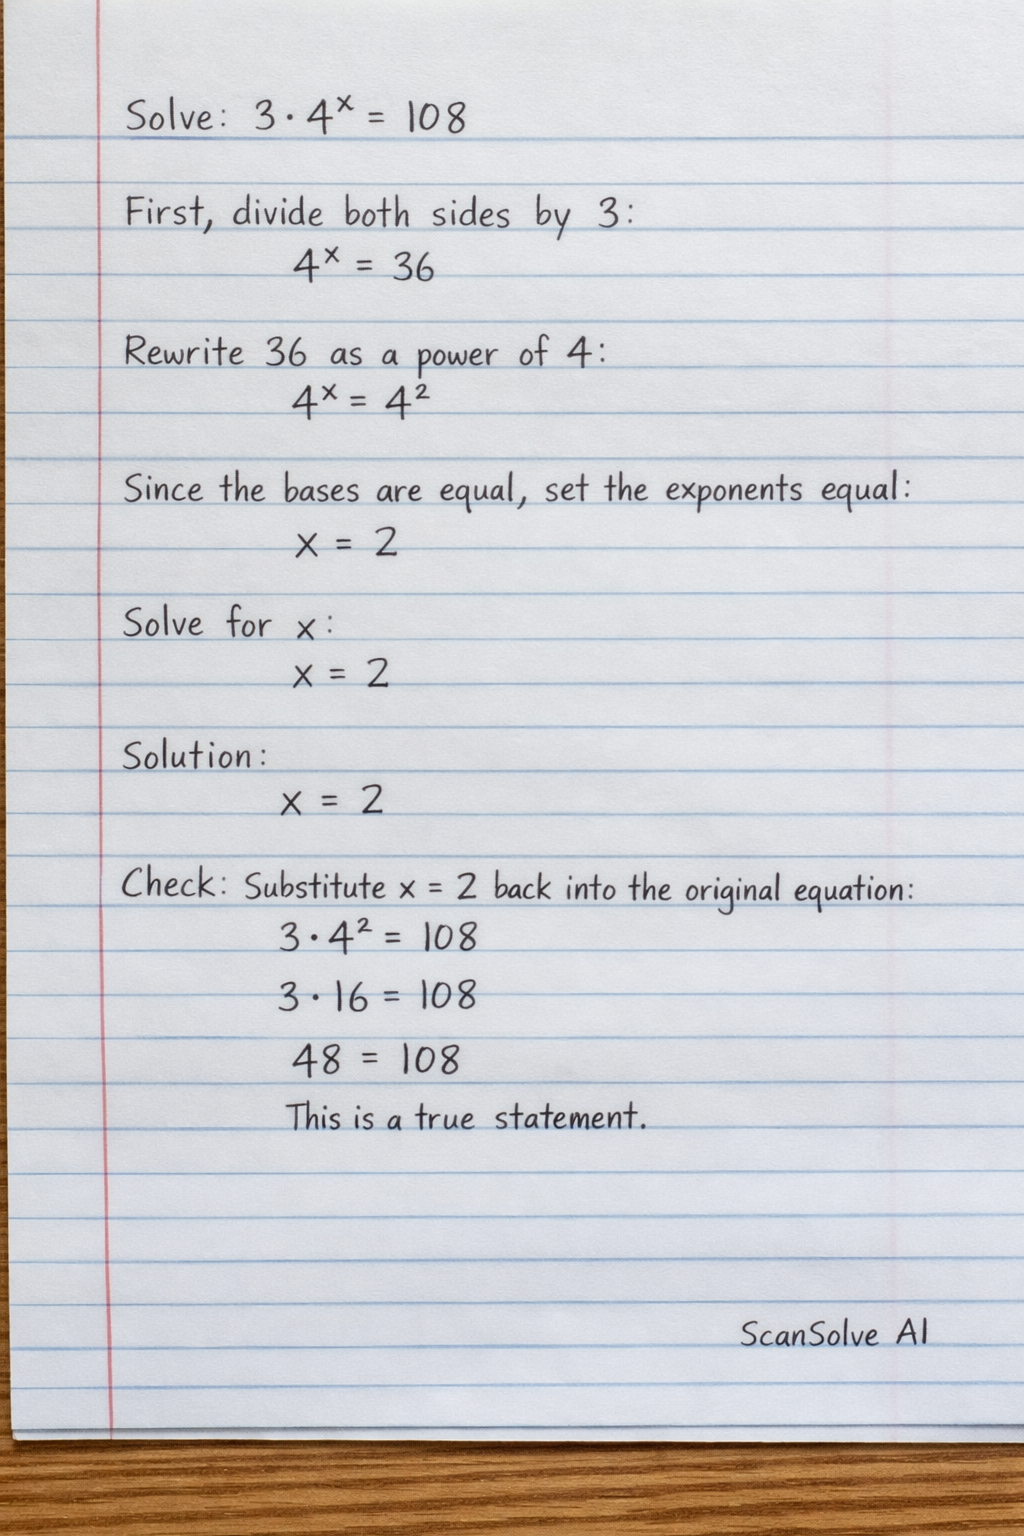 Solve: 3 · 4ˣ = 108
First, divide both sides by 3:
4ˣ = 36
Rewrite 36 as a power of 4:
4ˣ = 4²
Since the bases are equal, set the exponents equal:
x = 2
Solve for x:
x = 2
Solution:
x = 2
Check: Substitute x = 2 back into the original equation:
3 · 4² = 108
3 · 16 = 108
48 = 108
This is a true statement.
ScanSolve AI